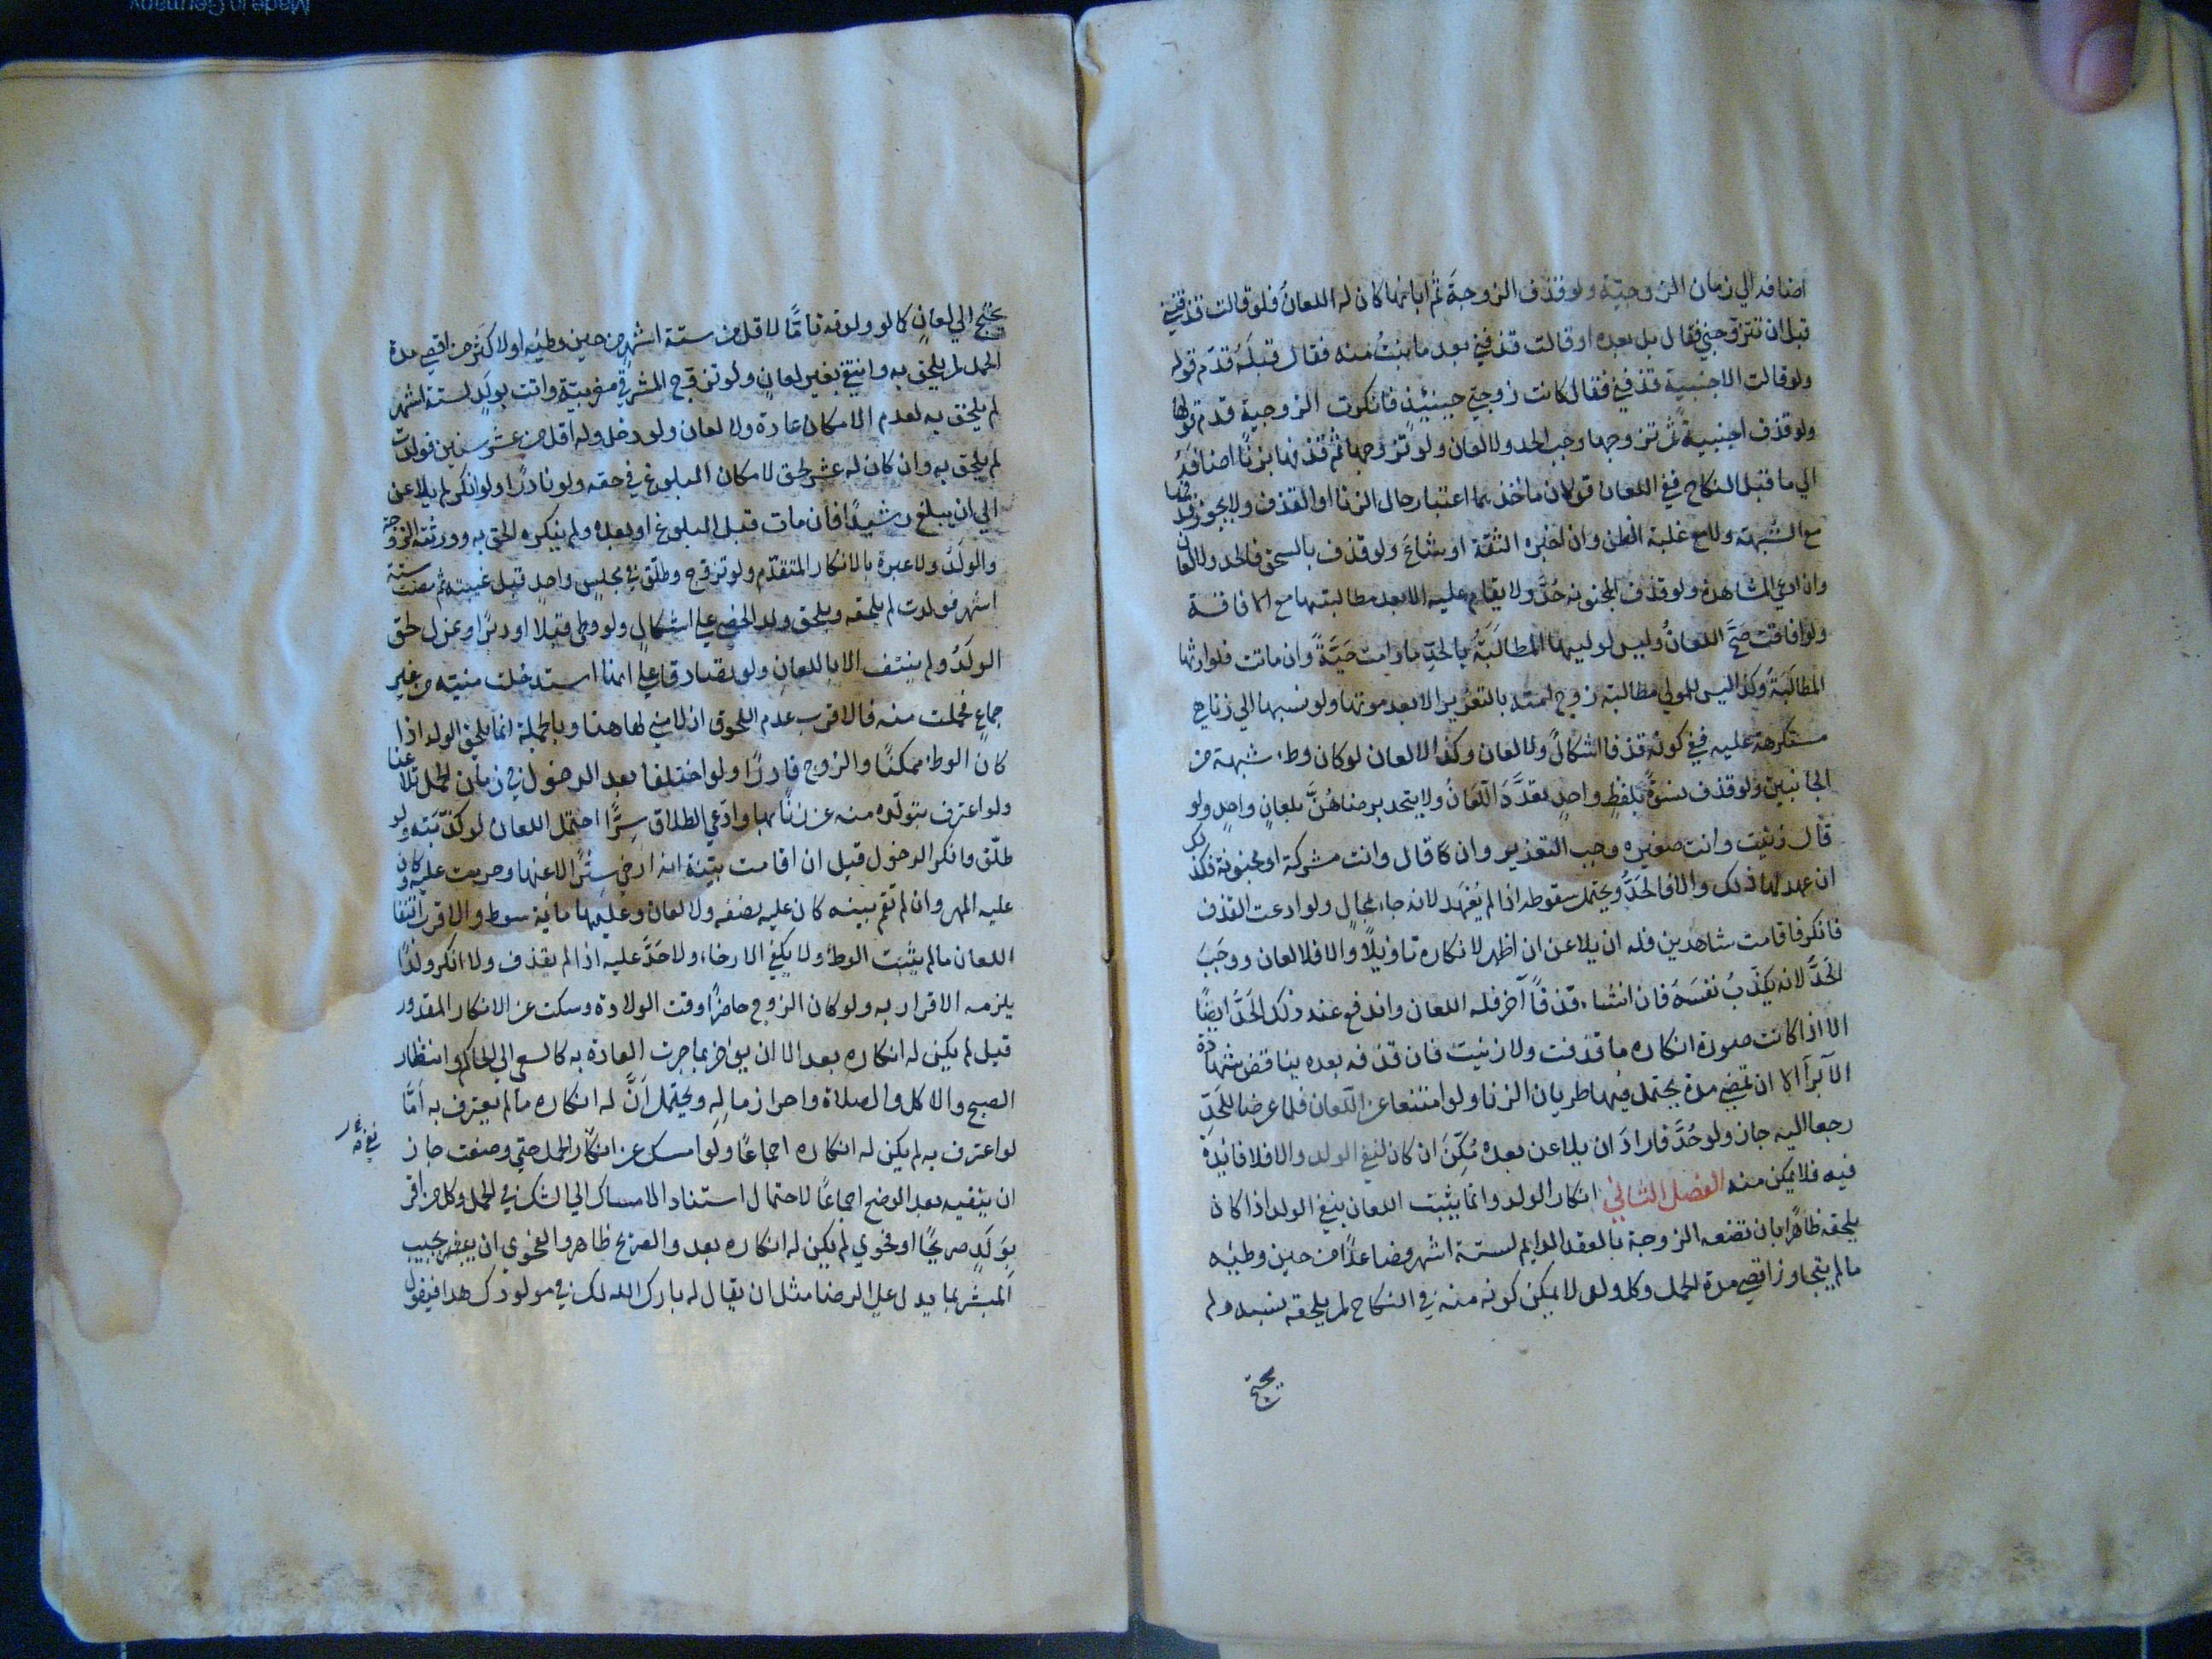 اضافه الي زمان الزوجيّة ولو قذف الزوجة ثم ابانها كان له اللعان فلو قالت قذفني
قبل ان تتزوجني فقال بل بعده او قالت قذفني بعد ما بنتُ منه فقال قبله قدّم قوله
ولو قالت الاجنبية قذفني فقال كانت زوجتي حينئذ فانكرت الزوجية قدم قولها
ولو قذف اجنبية ثم تزوجها وجب الحد ولا لعان ولو تزوجها ثم قذفها بزنا اضافه
الي ما قبل النكاح ففي اللعان قولان ماخذهما اعتبار حال الزنا او القذف ولا يجوز قذفها
مع الشبهة ولا مع غلبة الظن وان اخبره الثقة او شاع ولو قذف بالسحق فالحد ولا لعان
وان ادعي المشاهدة ولو قذف المجنونه حُدّ ولا يقام عليه الا بعد مطالبتها مع الافاقة
ولو افاقت صحّ اللعانُ وليس لوليها المطالبة بالحدّ ما دامت حيّةً وان ماتت فلوارثها
المطالبة وكذا ليس للمولي مطالبة زوج امته بالتعزير الا بعد موتها ولو نسبها الي زنا هي
مستكرهة عليه ففي كونه قذفا اشكالٌ ولا لعان وكذا لا لعان لو كان وطء شبهة من
الجانبين ولو قذف نسوةً بلفظٍ واحدٍ تعدّدَ اللعانُ ولا يتحد برضاهُنّ بلعانٍ واحدٍ ولو
قال زنيت وانت صغيره وجب التعزير وان كا قال وانت مشركة او مجنونة فكذلك
ان عهد لها ذلك والا فالحدّ ويحتمل سقوطه اذا لم يُعهَد لانه جاء بمحالٍ ولو ادعت القذف
فانكر فاقامت شاهدين فله ان يلاعن ان اظهر لانكاره تاويلًا والا فلا لعان ووجَبَ
الحدّ لانه يكذّبُ نفسَهُ فان انشاء قذفًا آخر فله اللعان واندفع عنه ذلك الحدّ ايضًا
الا اذا كانت صورة انكاره ما قذفت ولا زنيت فان قذفه بعده يناقض شهادة
الابرا الا ان تمضي مدة يحتمل فيها طريان الزنا ولو امتنعا عن اللعان فلما عرضا للحدّ
رجعا اليه جاز ولو حُدّ فارادَ ان يلاعن بعده مُكّنَ ان كان لنفي الولد والا فلا فائدة
فيه فلا يمكن منه الفصل الثاني انكار الولد وانما يثبت اللعان بنفي الولد اذا كان
يلحقه ظاهرًا بان تضعه الزوجة بالعقد الدايم لستة اشهر فصاعدًا من حين وطيه
ما لم يتجاوز اقصي مدة الحمل وكل ولد لا يمكن كونه منه في النكاح لم يلحقه نسبه ولم
يحتج
يحتج الي لعانٍ كما لو ولدته تامًّا لاقل من ستة اشهر من حين وطيه او لاكثر من اقصي مدة
الحمل لم يلحق به وانتفي بغير لعانٍ ولو تزوج المشرقي مغربيّة واتت بولد لستة اشهر
لم يلحق به لعدم الامكان عادة ولا لعان ولو دخل وله اقل من عشر سنين فولدت
لم يلحق به وان كان له عشر لحق لامكان البلوغ في حقه ولو نادرًا ولو انكر لم يلاعن
الي ان يبلغ رشيدًا فان مات قبل البلوغ او بعده ولم ينكره لحق به وورثته الزوجة
والولد ولا عبرة بالانكار المتقدّم ولو تزوج وطلّق في مجلس واحد قبل غيبته ثم مضت ستة
اشهر فولدت لم يلحقه ويلحق ولد الخصي علي اشكال ولو وطئ قبلا او دبرًا وعزل لحق
الولد ولم ينتف الا باللعان ولو تصادقا علي انها استدخلت منيّه من غير
جماعٍ فحملت منه فالاقرب عدم اللحوق اذ لا مني لها هنا وبالجملة انما يلحق الولد اذا
كان الوطء ممكنًا والزوج قادرًا ولو اختلفا بعد الدخول في زمان الحمل تلاعنا
ولو اعترف بتولّده منه عن زنًا بها وادّعي الطلاق سرًّا احتمل اللعان لو كذّبته ولو
طلّق وانكر الدخول قيل ان اقامت بيّنة انه ارخي سترًا لاعنها وحرمت عليه وكان
عليه المهر وان لم تقم بينه كان عليه نصفه ولا لعان وعليها ماية سوط والاقرب انتفا
اللعان ما لم يثبت الوطء ولا يكفي الارخاء ولا حَدّ عليه اذا لم يقذف ولا انكر ولدًا
يلزمه الاقرار به ولو كان الزوج حاضرًا وقت الولادة وسكت عن الانكار المقدور
قيل لم يكن له انكاره بعد الا ان يؤخر بما جرت العادة به كالسعي الي الحاكم وانتظار
الصبح والاكل والصلاة واحراز مالِهِ ويحتمل اَنّ له انكاره ما لم يعترف به اَمّا
لو اعترف به لم يكن له انكاره اجماعًا ولو امسك عن انكار الحمل حتي وضعت جاز
ان ينفيه بعد الوضع اجماعًا لاحتمال استناد الامساك الي الشك في الحمل وكل من اقر
بولدٍ صريحًا او فحوي لم يكن له انكاره بعد والصريح ظاهر والفحوي ان يجيب
المبشر بما يدل علي الرضا مثل ان يقال له بارك الله لك في مولودك هذا فيقول